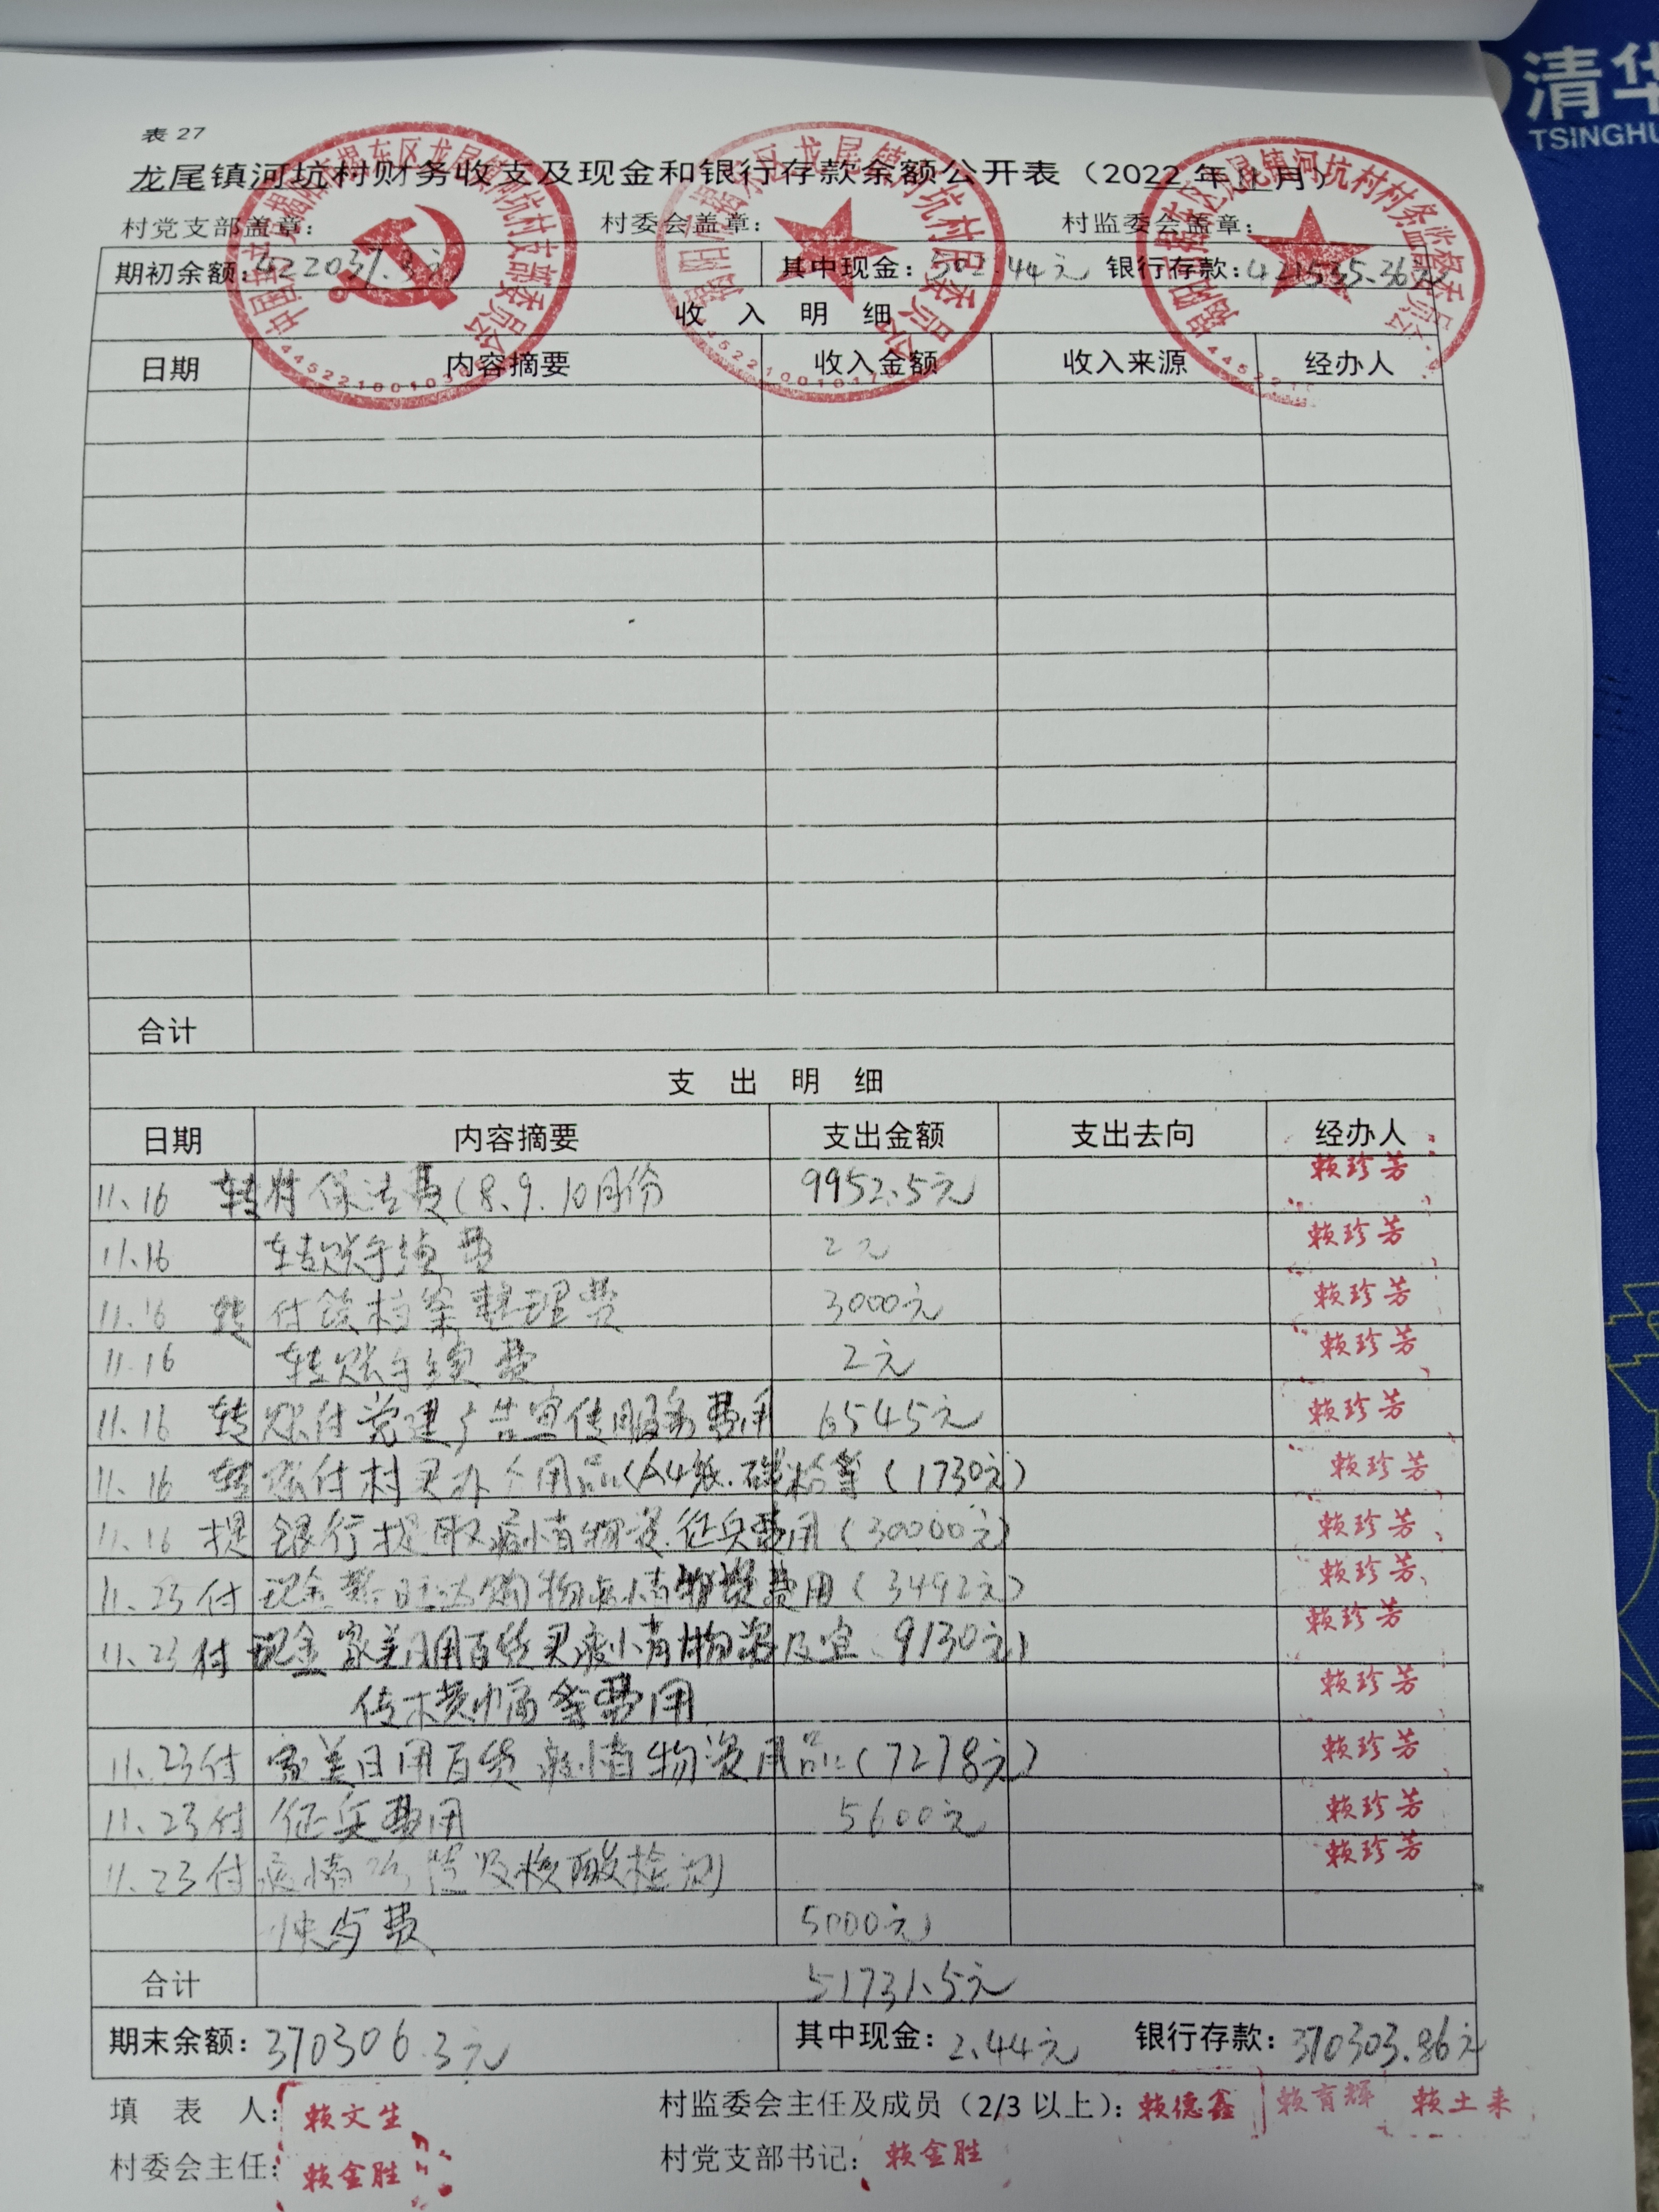 清华
TSINGHU
表 27
龙尾镇河坑村财务收支及现金和银行存款余额公开表（2022 年 11 月）
村党支部盖章： 村委会盖章： 村监委会盖章：
期初余额：422037.8元 其中现金：502.44元 银行存款：421535.36元
收 入 明 细
日期 内容摘要 收入金额 收入来源 经办人
合计
支 出 明 细
日期 内容摘要 支出金额 支出去向 经办人
11.16 转村保洁费（8、9、10月份 9952.5元 赖珍芳
11.16 转账手续费 2元 赖珍芳
11.16 转付 档案整理费 3000元 赖珍芳
11.16 转账手续费 2元 赖珍芳
11.16 转账付党建广告宣传服务费用 6545元 赖珍芳
11.16 转账付村买办公用品（A4纸、碳粉等（1730元） 赖珍芳
11.16 提银行提取疫情物资、征兵费用（30000元） 赖珍芳
11.23 付现金 购物疫情物资费用（3492元） 赖珍芳
11.23 付现金家美日用百货买疫情物资及宣（9130元） 赖珍芳
传木横幅等费用 赖珍芳
11.23付 家美日用百货疫情物资用品（7278元） 赖珍芳
11.23付 征兵费用 5600元 赖珍芳
11.23付 疫情 及核酸检测 赖珍芳
费 5000元
合计 51731.5元
期末余额：370306.3元 其中现金：2.44元 银行存款：370303.86元
填 表 人：赖文生 村监委会主任及成员（2/3 以上）：赖德鑫 赖育辉 赖土来
村委会主任：赖金胜 村党支部书记：赖金胜